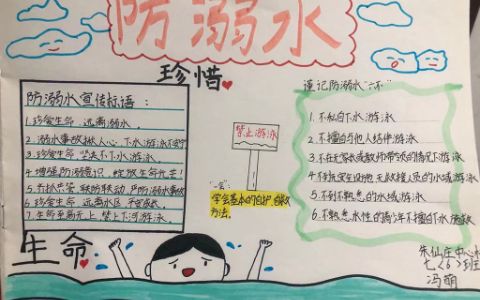 防溺水
珍惜
防溺水宣传标语:
1、珍爱生命 远离溺水。
2、溺水事故揪人心 下水游泳不
3、珍爱生命 坚决不下水游泳。
4、增强防溺意识 绽放生命光芒!
5、齐抓共管 联防联动 严防溺水事故
6、珍爱生命 远离水区 平安成长。
7、生命至高无上 禁止下河游泳
生命
禁止游泳
"一会":
学会基本的自护、自救
方法。
谨记防溺水"六不"
1、不私自下水游泳
2、不擅自与他人结伴游泳
3、不在无家长或教师带领的情况下游泳
4、不到无安全设施、无救援人员的水域游泳
5、不到不熟悉的水域游泳
6、不熟悉水性的青少年不擅自下水施救
朱仙庄中心
七〈6〉班
冯萌